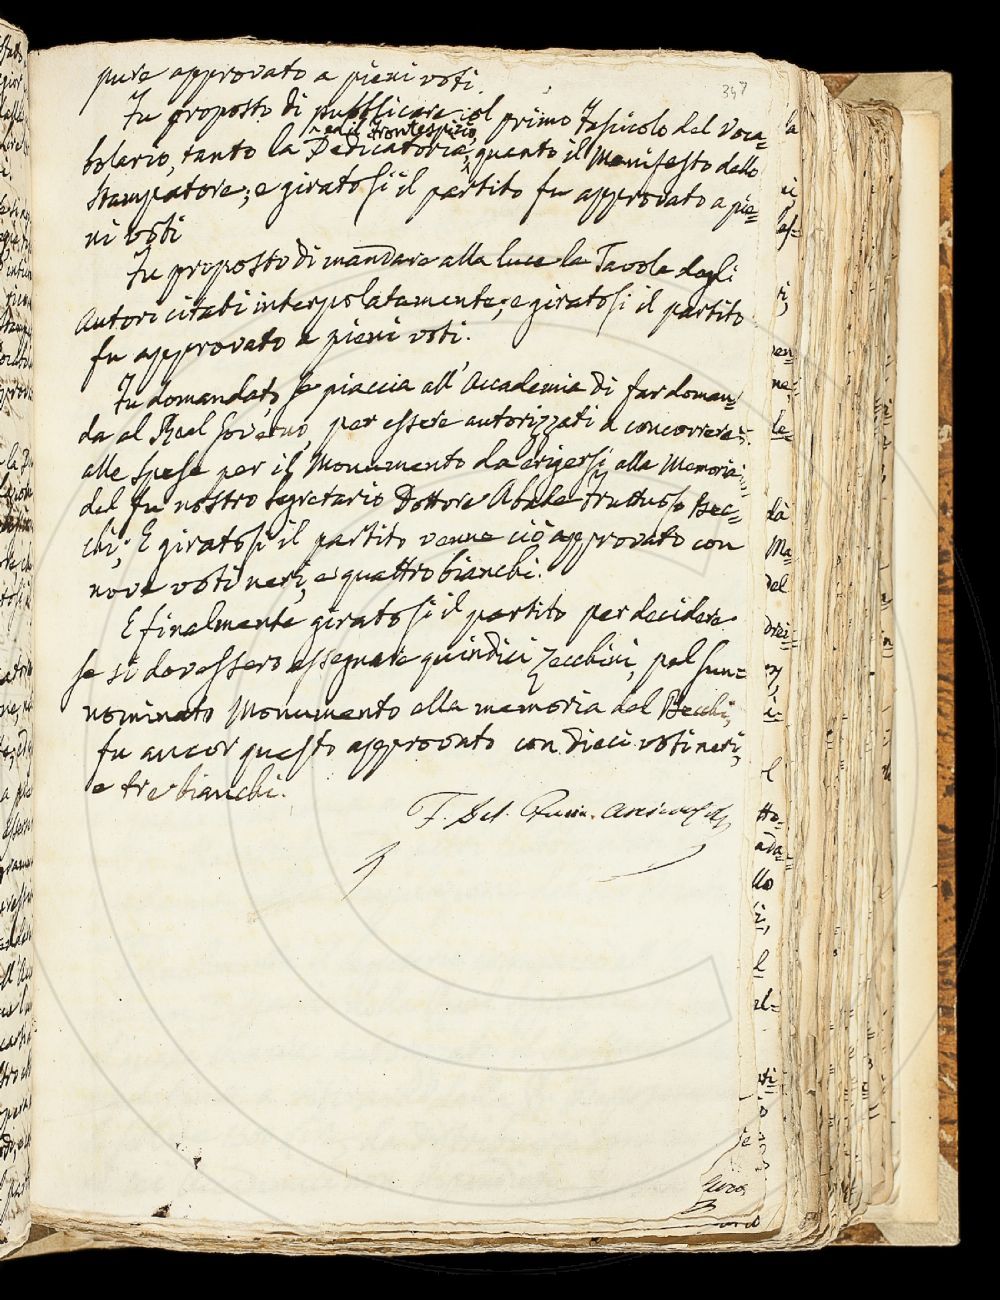 347
pure approvato a pieni voti.
Fu proposto di pubblicare col primo Fascicolo del Voca=
ed il frontespizio,
bolario, tanto la Dedicatoria, quanto il Manifesto dello
Stampatore; e giratosi il partito fu approvato a pie=
ni voti
Fu proposto di mandare alla luce la Tavola degli
Autori citati interpolatamente; e giratosi il partito
fu approvato a pieni voti.
Fu domandato se piaccia all'Accademia di far doman=
da al Real Governo, per essere autorizzati a concorrere
alle spese per il Monumento da erigersi alla Memoria
del fu nostro Segretario Dottore Abate Fruttuoso Bec=
chi; E giratosi il partito venne ciò approvato con
nove voti neri, e quattro bianchi.
E finalmente giratosi il partito per decidere
se si dovessero assegnare quindici Zecchini, pel sun=
nominato Monumento alla memoria del Becchi,
fu ancor questo approvato con dieci voti neri,
e tre bianchi.
F. Del